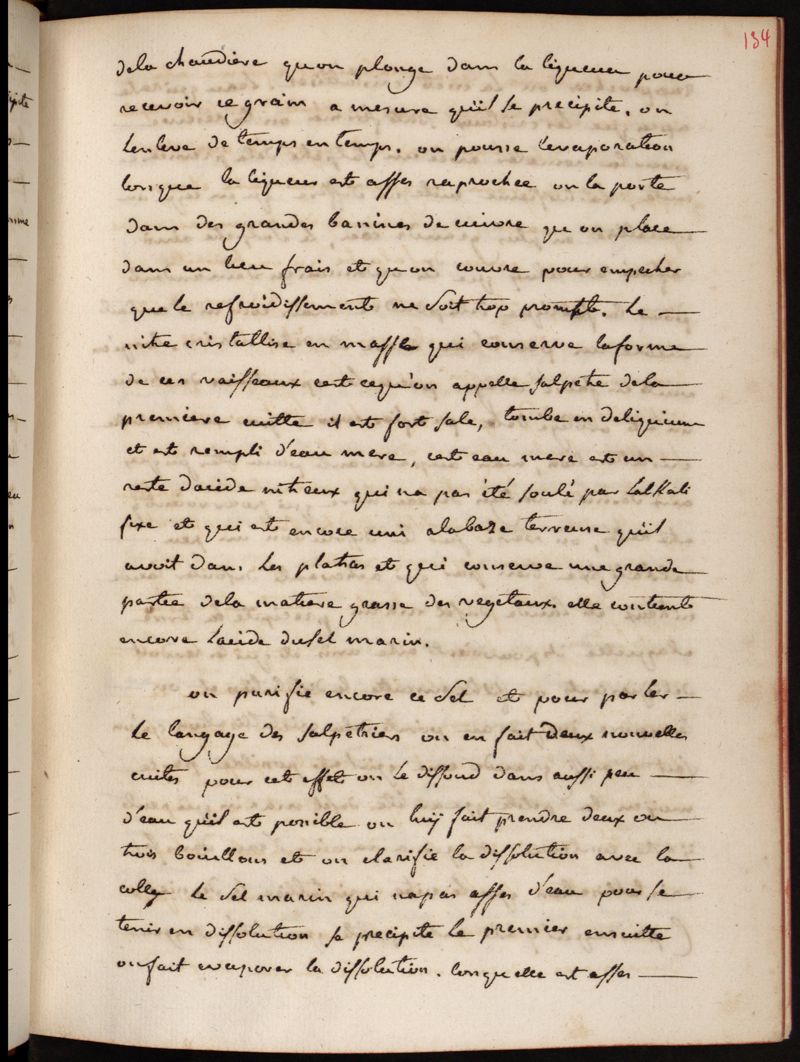 134
dela chaudiere qu'on plonge dans la liqueur pour
recevoir ce grain a mesure qu'il se precipite. on
lenleve de temps en temps. on pousse levaporation
lorsque la liqueur est asses raprochée on la porte
dans des grandes bassines de cuivre qu'on place
dans un lieu frais et qu'on couvre pour empecher
que le refroidissement ne soit trop prompte. Le
nitre cristallise en masse qui conserve la forme
de ces vaisseaux c'est ce qu'on appelle salpetre dela
premiere cuitte il est fort sale, tombe en deliquium
et est rempli d'eau mere, cest eau mere est un
reste d'acide nitreux qui na pas été soulé par lalkali
fixe et qui est encore uni alabaze terreuse qu'il
avoit dans les platras et qui conserve une grande
partie dela matiere grasse des vegetaux. elle contient
encore lacide dusel marin.
on purifie encore ce sel et pour parler
le langage des salpetriers on en fait deux nouvelles
cuites pour cet effet on le dissoud dans aussi peu
d'eau qu'il est possible on luy fait prendre deux ou
trois bouillons et on clarifie la dissolution avec la
colle le sel marin qui napas asses d'eau pour se
tenir en dissolution se precipite le premier ensuitte
on fait evaporer la dissolution. lorsqu'elle est asses